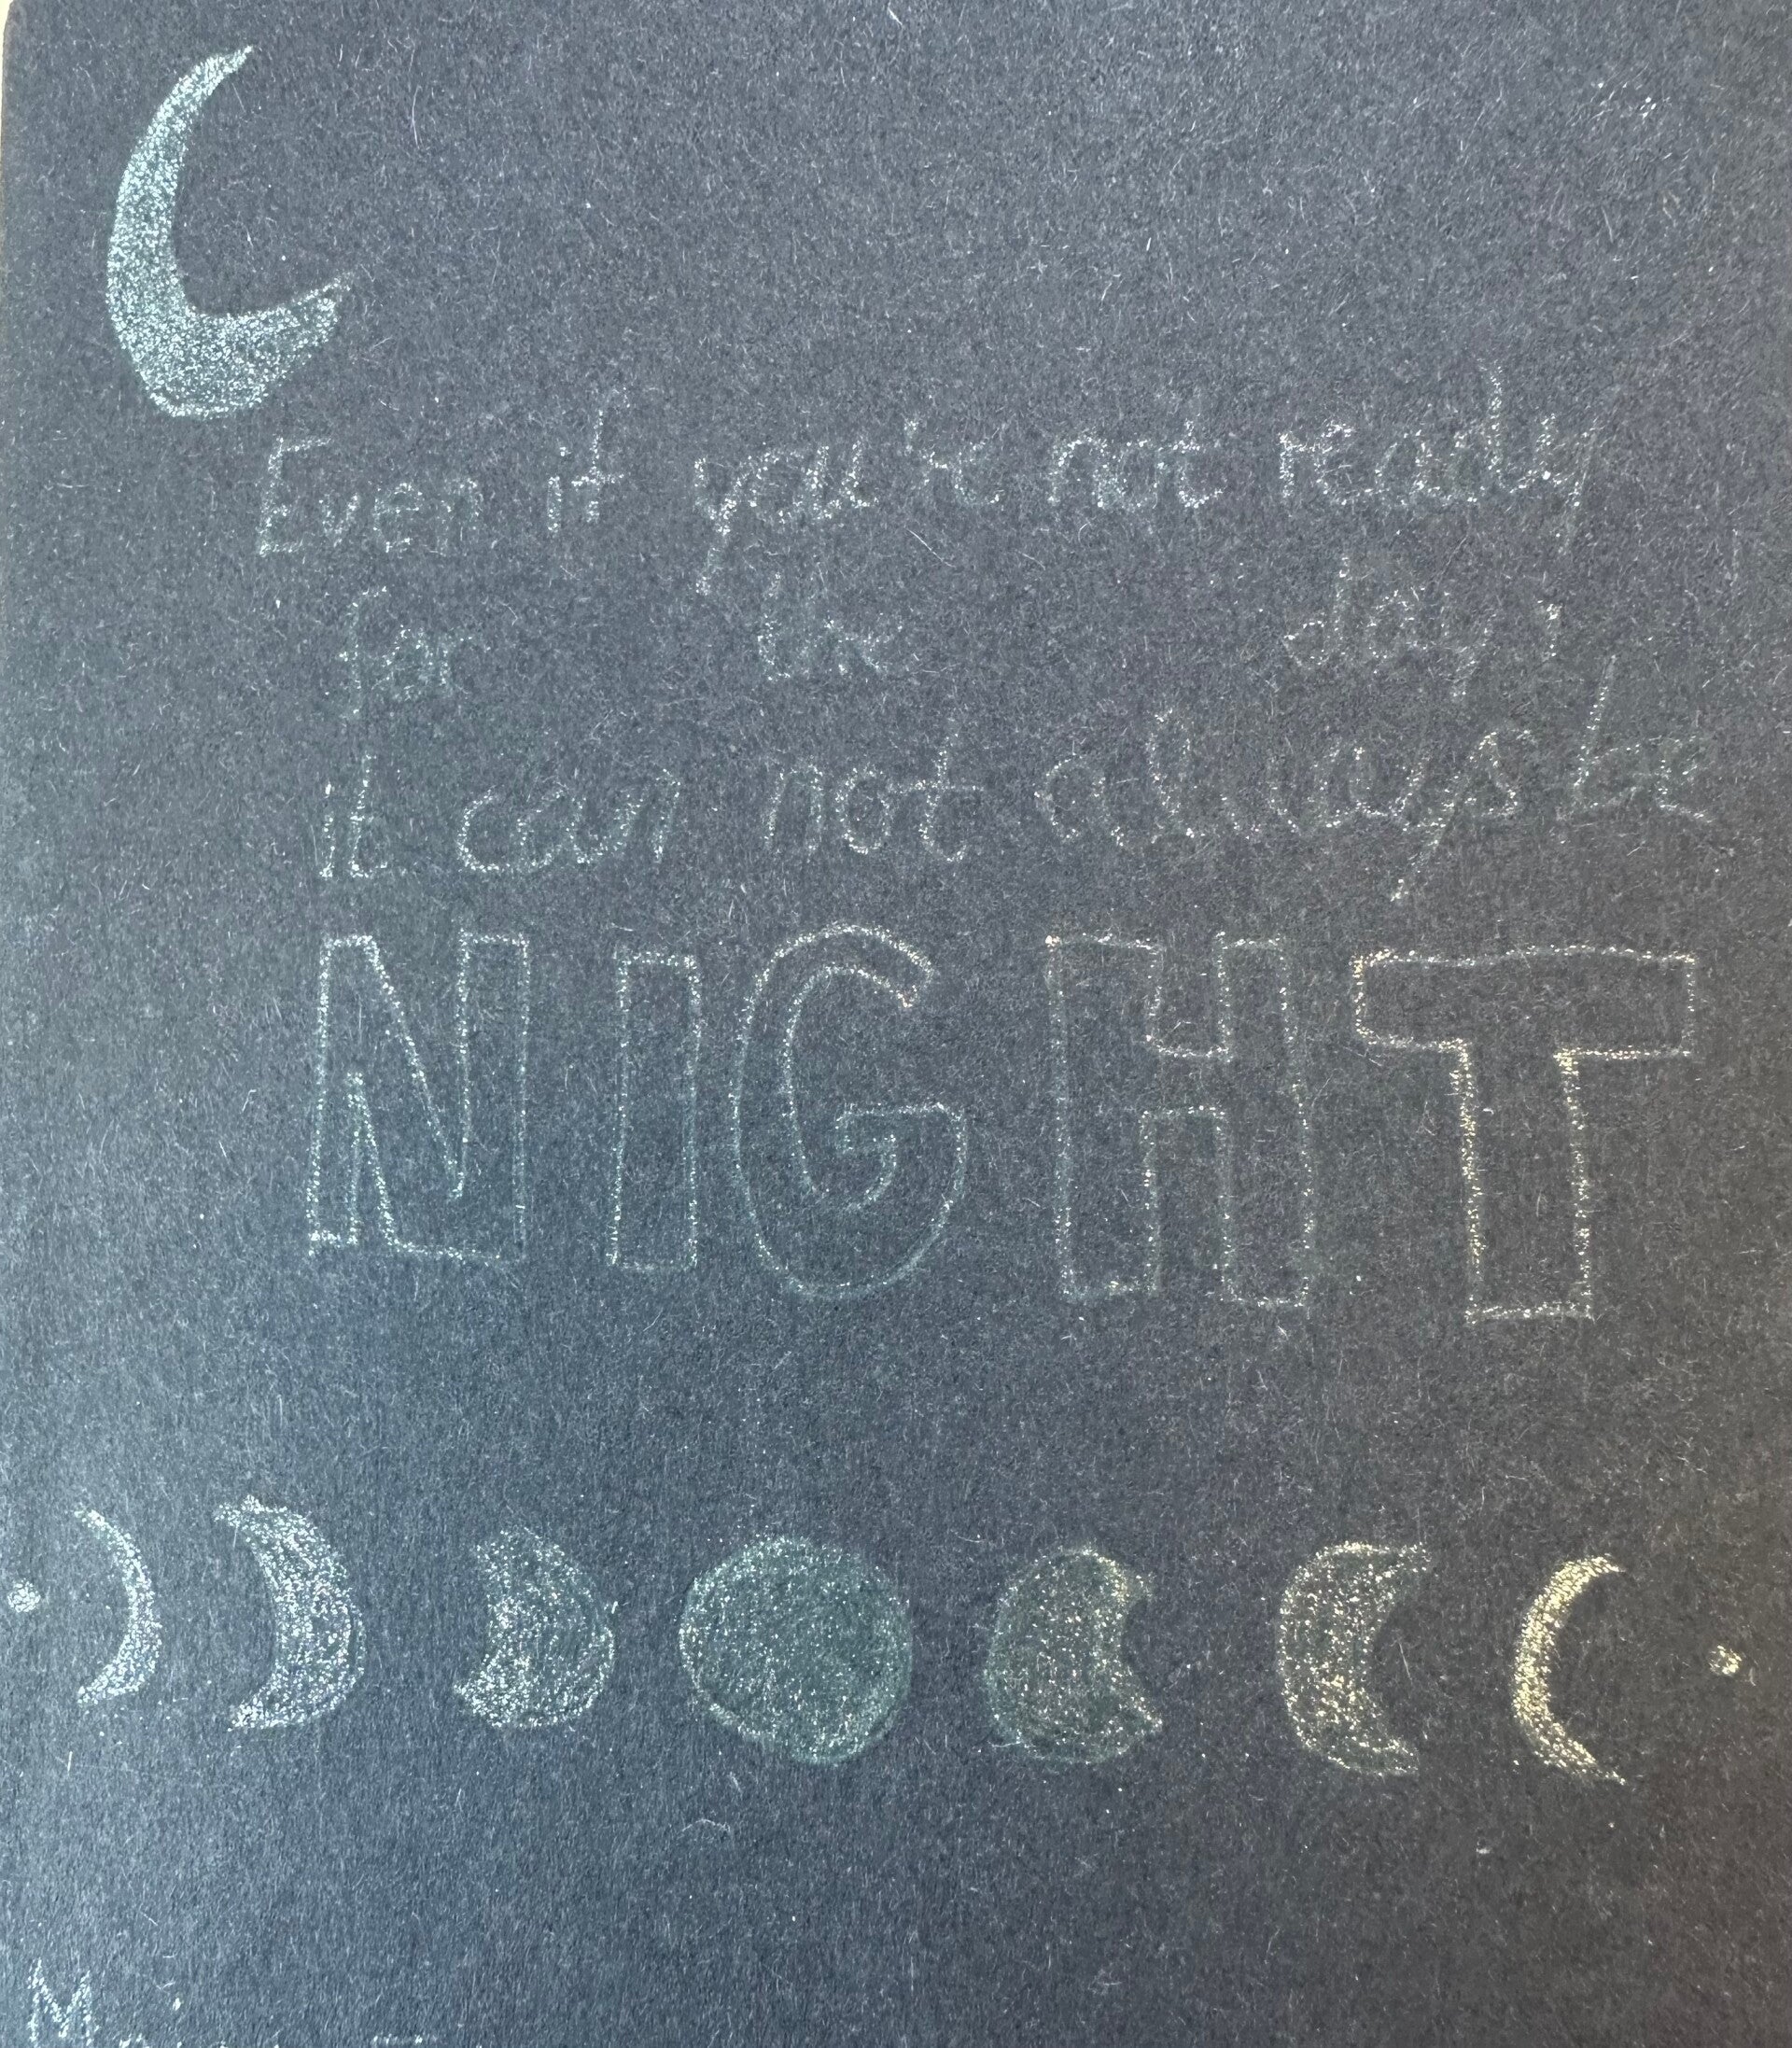 Even if you're not ready
for the day,
it can not always be
NIGHT